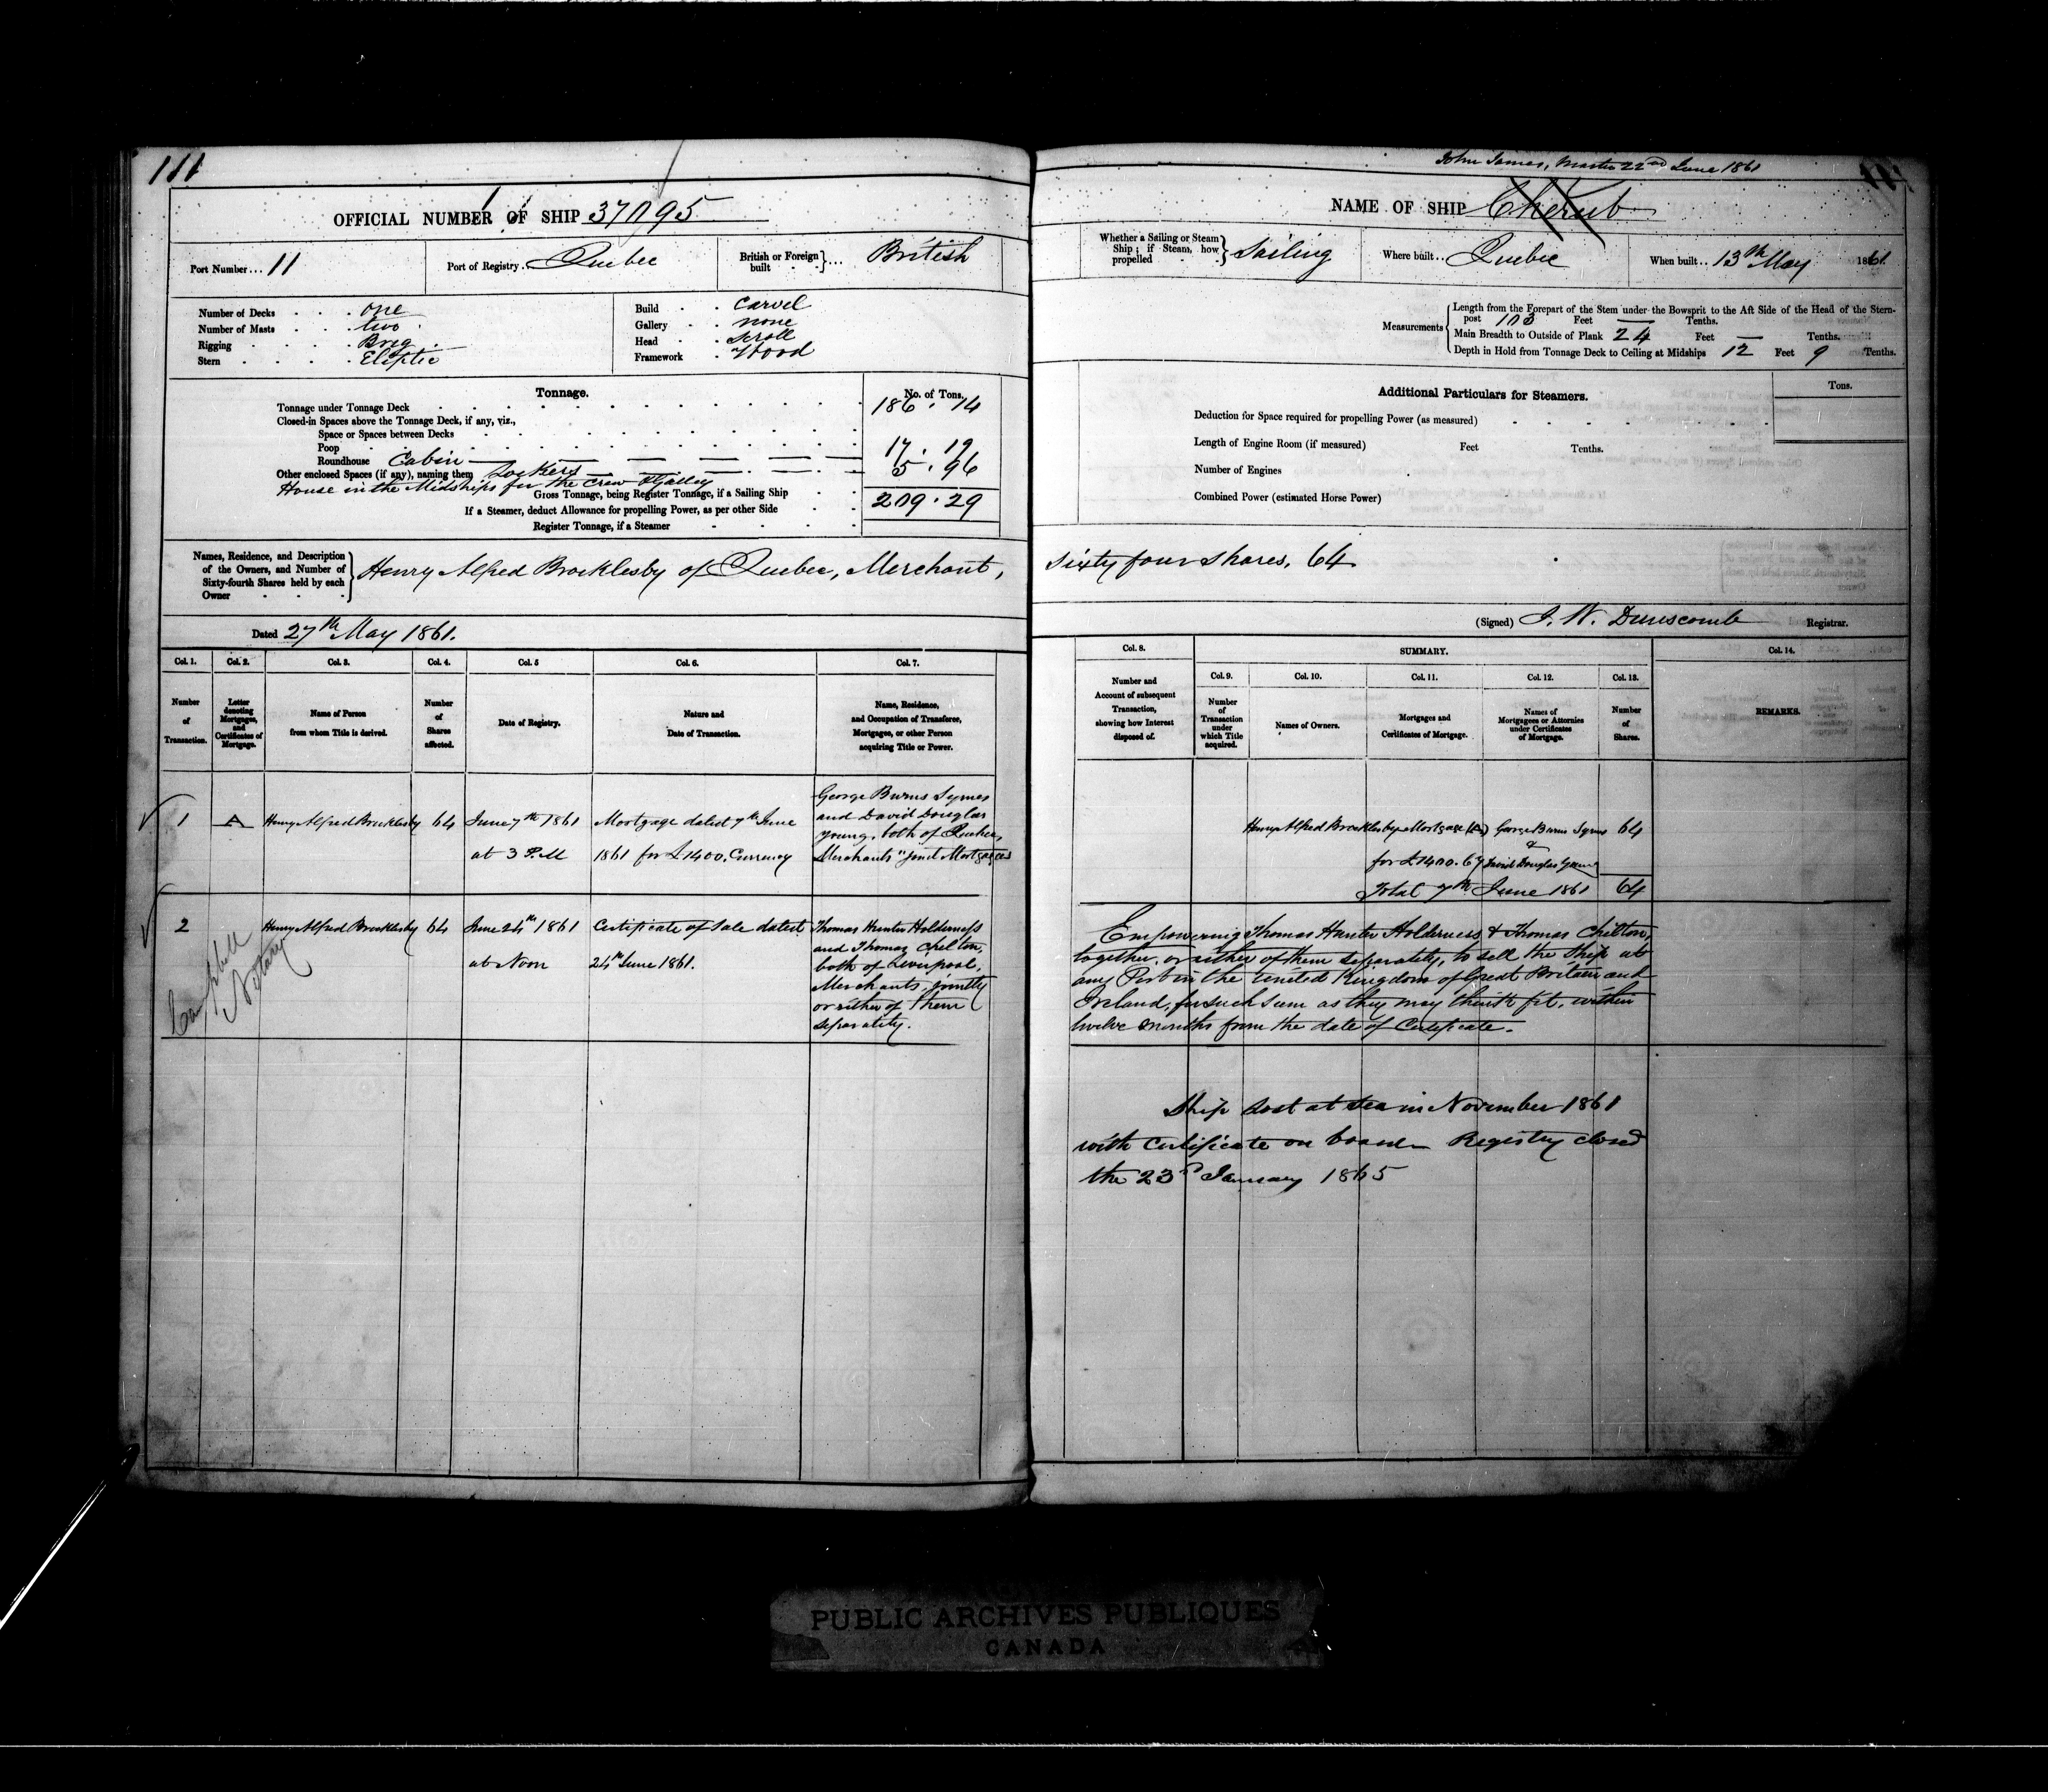 111
OFFICIAL NUMBER OF SHIP 37095
Port Number... 11
Port of Registry.. Quebec
British or Foreign built } ... British
Number of Decks one
Number of Masts two
Rigging Brig
Stern Eliptic
Build Carvel
Gallery none
Head Scroll
Framework Wood
Tonnage.
No. of Tons.
Tonnage under Tonnage Deck 186 . 14
Closed-in Spaces above the Tonnage Deck, if any, viz.,
Space or Spaces between Decks
Poop 17 . 19
Roundhouse Cabin 5 . 96
Other enclosed Spaces (if any), naming them Lockers
House in the Midships for the Crew & Galley
Gross Tonnage, being Register Tonnage, if a Sailing Ship 209 . 29
If a Steamer, deduct Allowance for propelling Power, as per other Side
Register Tonnage, if a Steamer
Names, Residence, and Description of the Owners, and Number of Sixty-fourth Shares held by each Owner } Henry Alfred Brocklesby of Quebec, Merchant,
Dated 27th May 1861.
Col. 1. Col. 2. Col. 3. Col. 4. Col. 5 Col. 6. Col. 7.
Number of Transaction.
Letter denoting Mortgages, and Certificates of Mortgage.
Name of Person from whom Title is derived.
Number of Shares affected.
Date of Registry.
Nature and Date of Transaction.
Name, Residence, and Occupation of Transferee, Mortgagee, or other Person acquiring Title or Power.
1 A Henry Alfred Brocklesby 64
June 7th 1861
at 3 P.M
Mortgage dated 7th June
1861 for £1400. Currency
George Burns Symes
and David Douglas
Young, both of Quebec,
Merchants "joint Mortgagees
2 Henry Alfred Brocklesby 64
June 24th 1861
at Noon
Certificate of Sale dated
24th June 1861.
Thomas Hunter Holderness
and Thomas Chilton,
both of Liverpool,
Merchants, jointly
or either of them
separately.
Campbell
Notary
John James, Master 22nd June 1861
NAME OF SHIP Cherub
Whether a Sailing or Steam Ship; if Steam, how propelled } Sailing
Where built.. Quebec
When built.. 13th May 1861
Measurements
Length from the Forepart of the Stem under the Bowsprit to the Aft Side of the Head of the Stern-
post 103 Feet — Tenths.
Main Breadth to Outside of Plank 24 Feet — Tenths.
Depth in Hold from Tonnage Deck to Ceiling at Midships 12 Feet 9 Tenths.
Additional Particulars for Steamers.
Tons.
Deduction for Space required for propelling Power (as measured)
Length of Engine Room (if measured) Feet Tenths.
Number of Engines
Combined Power (estimated Horse Power)
Sixty four shares, 64
(Signed) J. W. Dunscomb Registrar.
Col. 8. SUMMARY. Col. 14.
Col. 9. Col. 10. Col. 11. Col. 12. Col. 13.
Number and Account of subsequent Transaction, showing how Interest disposed of.
Number of Transaction under which Title acquired.
Names of Owners.
Mortgages and Certificates of Mortgage.
Names of Mortgagees or Attornies under Certificates of Mortgage.
Number of Shares.
REMARKS.
Henry Alfred Brocklesby Mortgage (A) George Burns Symes 64
&
for £1400. Cy David Douglas Young
Total 7th June 1861 64
Empowering Thomas Hunter Holderness & Thomas Chilton,
together, or either of them separately, to sell the Ship at
any Port in the United Kingdom of Great Britain and
Ireland, for such sum as they may think fit, within
twelve months from the date of Certificate.
Ship Lost at sea in November 1861
with Certificate on board — Registry closed
the 23rd January 1865
PUBLIC ARCHIVES PUBLIQUES
CANADA